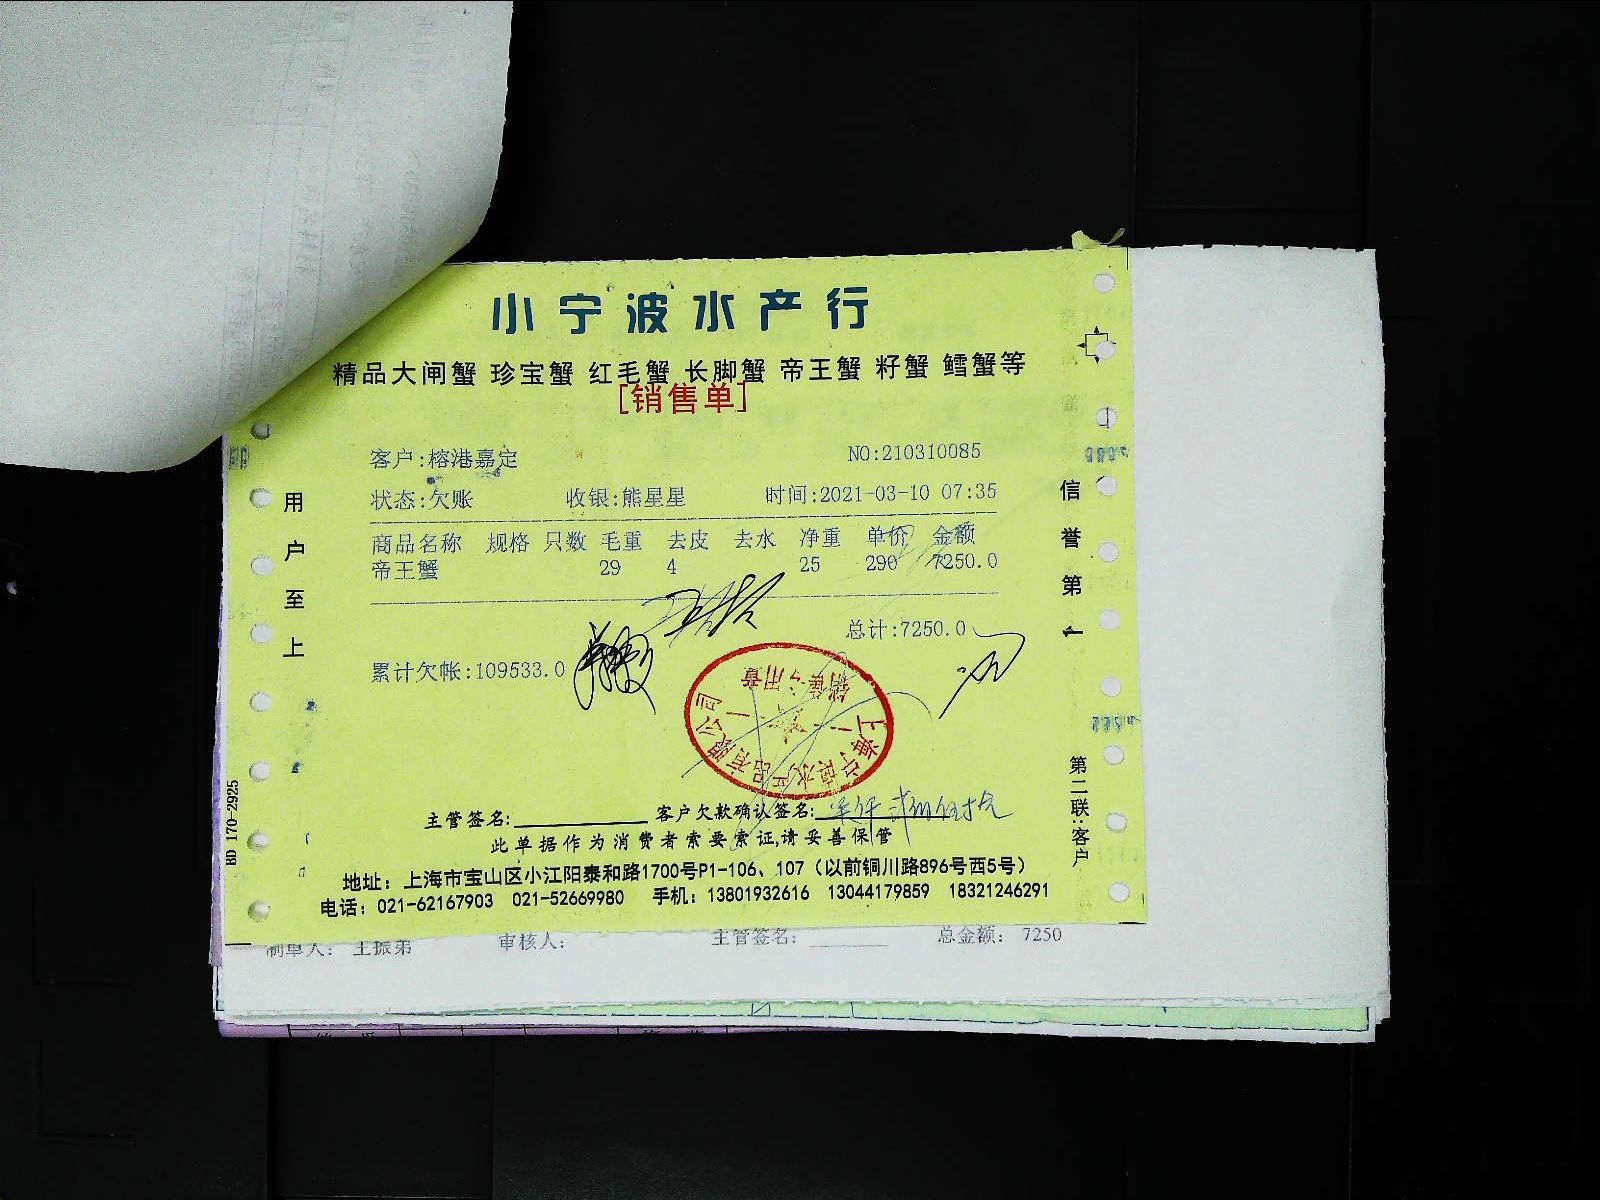 小宁波水产行
精品大闸蟹 珍宝蟹 红毛蟹 长脚蟹 帝王蟹 籽蟹 鳕蟹等
[销售单]
客户:榕港嘉定 NO:210310085
状态:欠账 收银:熊星星 时间:2021-03-10 07:35
商品名称 规格 只数 毛重 去皮 去水 净重 单价 金额
帝王蟹 29 4 25 290 7250.0
总计:7250.0
累计欠帐:109533.0
用户至上
信誉第一
第二联:客户
BD 170-2925
销售专用章
主管签名: 客户欠款确认签名:
此单据作为消费者索要索证,请妥善保管
地址：上海市宝山区小江阳泰和路1700号P1-106、107（以前铜川路896号西5号）
电话：021-62167903 021-52669980 手机：13801932616 13044179859 18321246291
制单人: 王振弟 审核人: 主管签名: 总金额: 7250